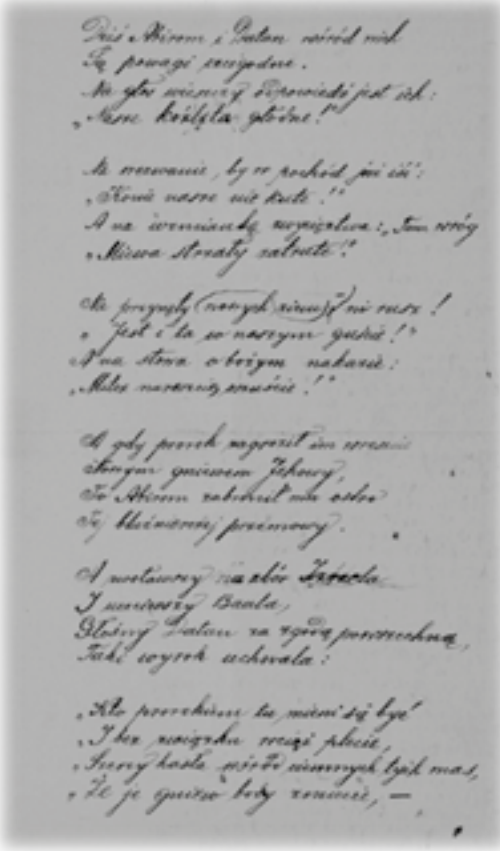 Dziś Abirom i Datan wśród nich
Są powagi
Na głos odpowiedź jest ich:
„Nasze koźlęta głodne!"
Na wezwanie, by w pochód już iść:
„Konie nasze nie kute!"
A na wzmiankę zwycięztwa: „Tam wróg
„Miewa strzały zatrute!"
Na przyszły nie rusz!
„Jest i ta w naszym guście!"
A na słowa o bożym nakazie:
„Milcz nareszcie, oszuście!"
A gdy prorok zagroził im wreszcie
gniewem Jehowy,
To Abirom zabronił mu ostro
Tej bluźnierczej przemowy.
A zwoławszy na zbór Izraela
I uczciwszy Baala,
Głośny Datan za zgodą powszechną,
Taki wyrok uchwala:
„Kto prorokiem tu mieni się być
„I bez związku wciąż plecie,
„Szerzy hasła wśród ciemnych tych mas,
„Że je gniew boży zmiecie, —